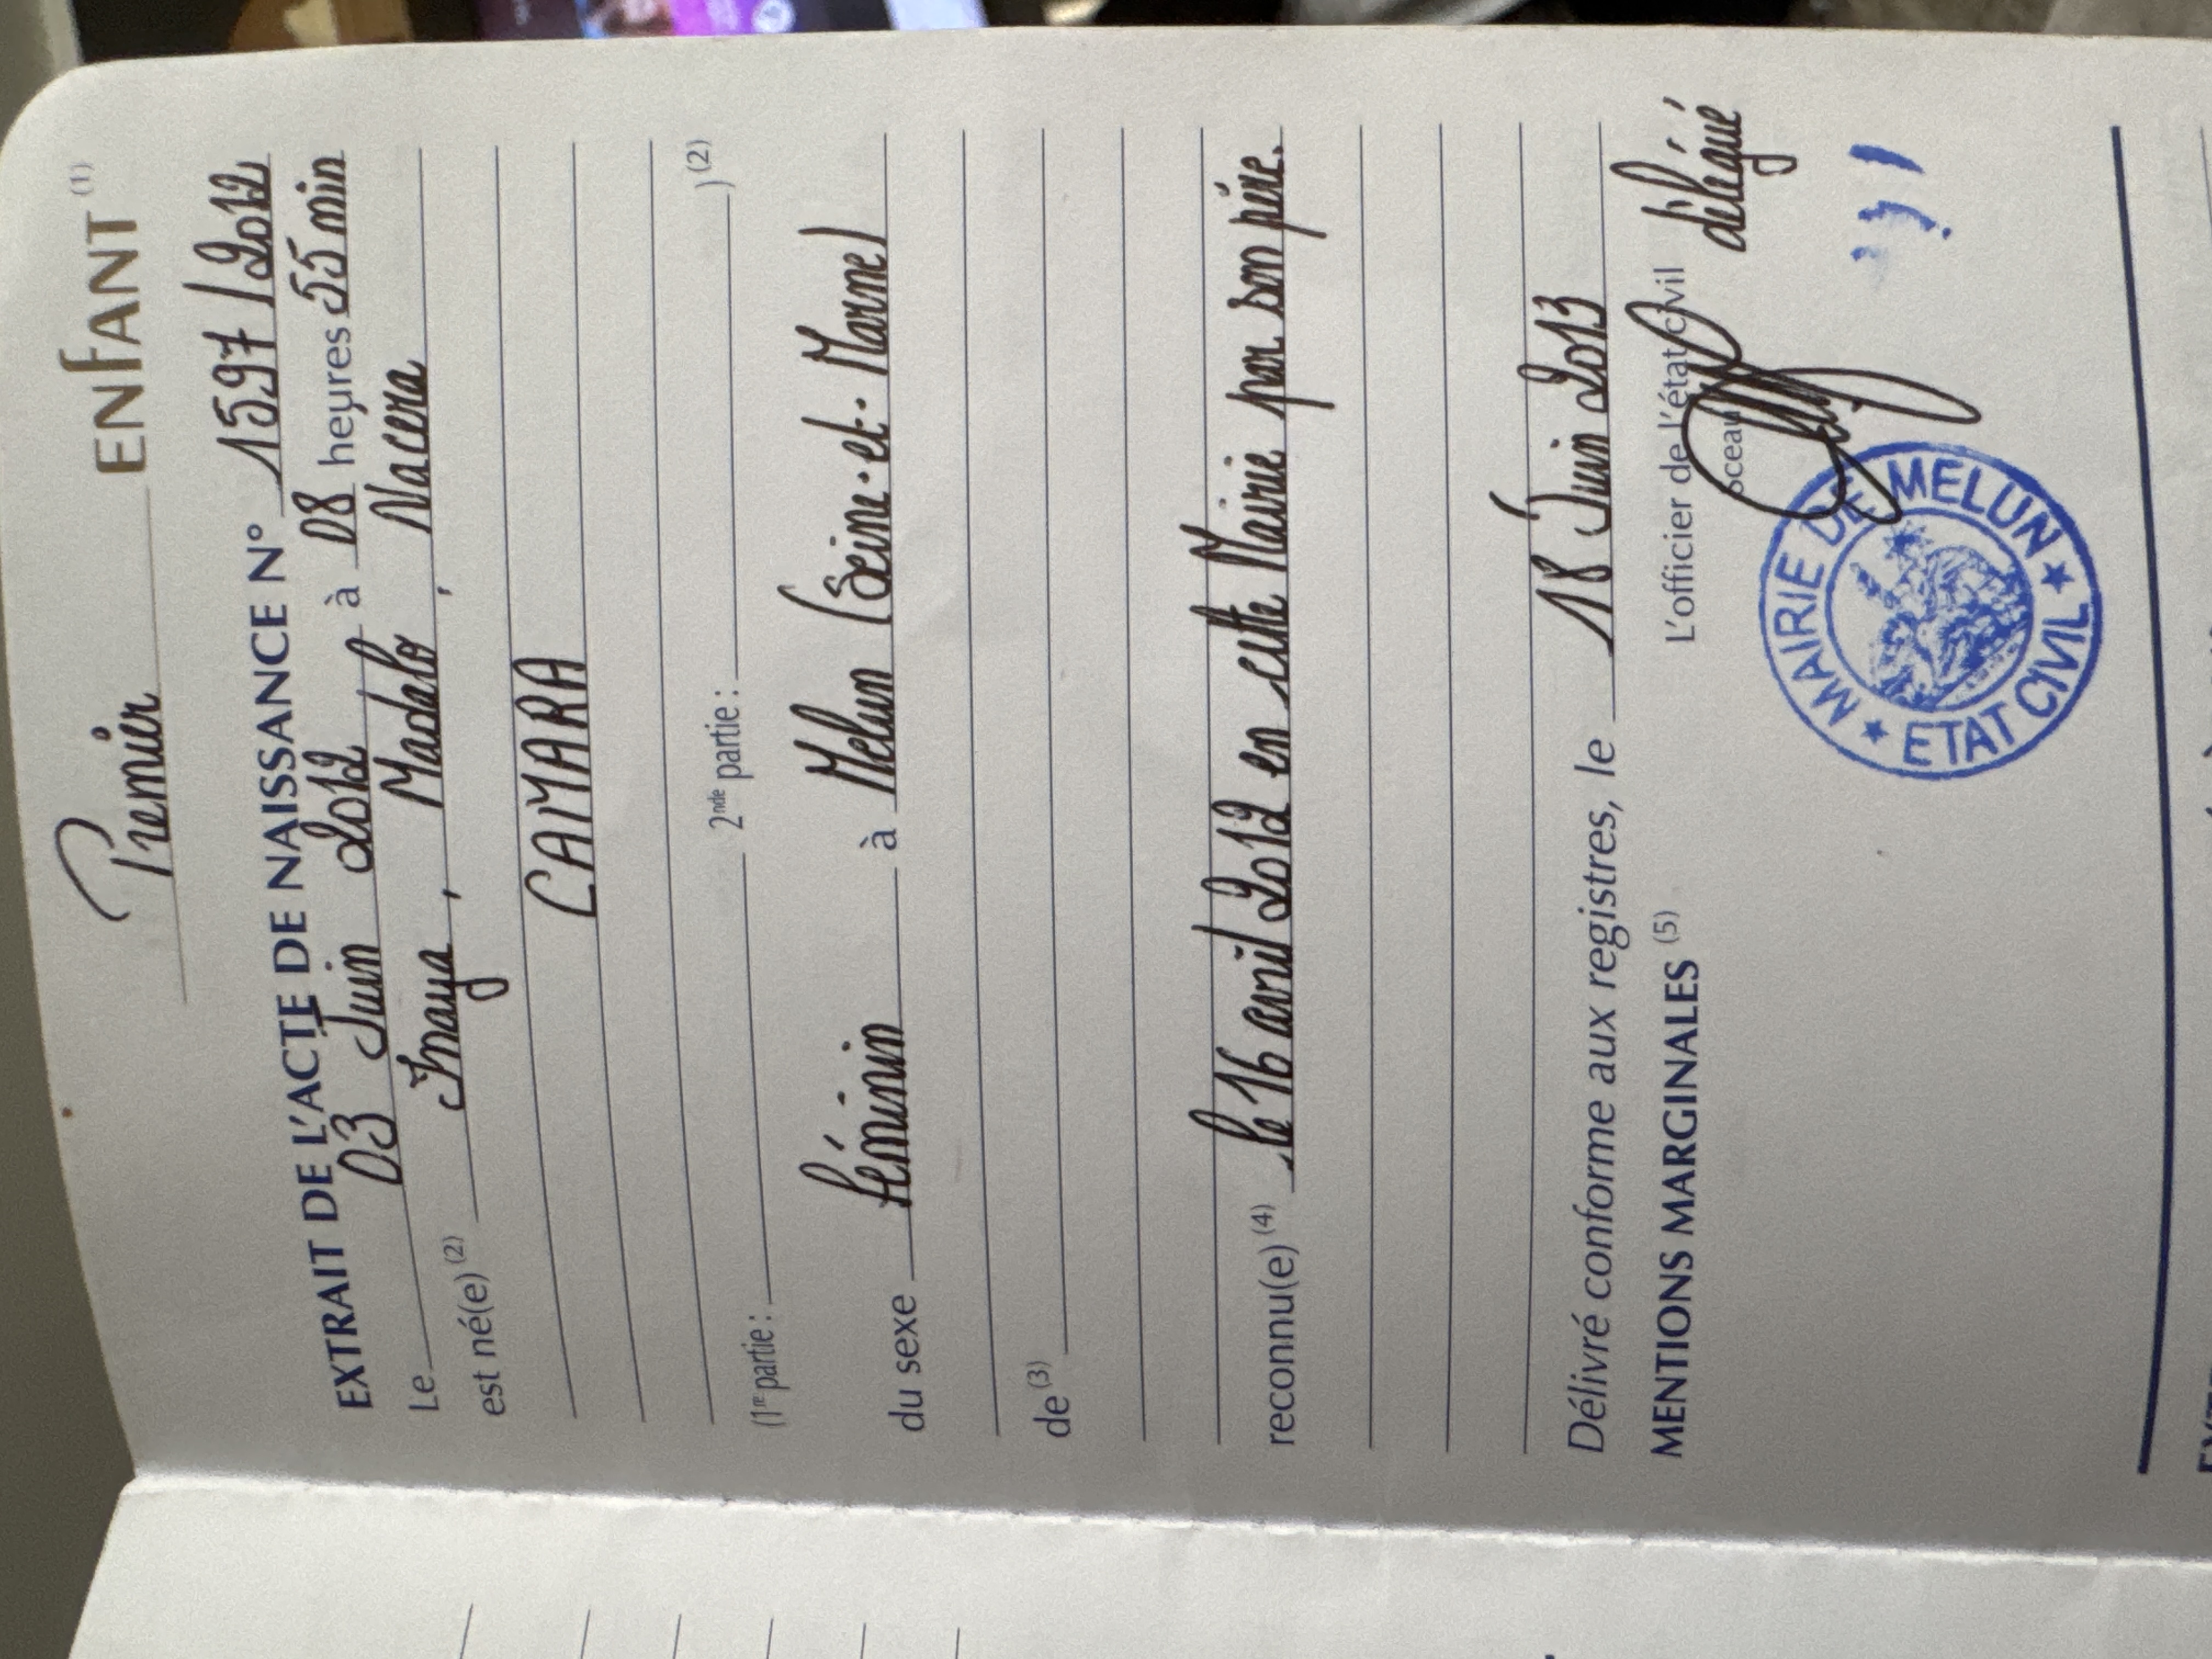 Premier ENFANT (1)
EXTRAIT DE L'ACTE DE NAISSANCE N° 1597/2012
Le 03 Juin 2012 à 08 heures 55 min
est né(e) (2) Inaya, Madalo, Nacera
CAMARA
(1re partie : 2nde partie : ) (2)
du sexe féminin à Melun (Seine-et-Marne)
de (3)
reconnu(e) (4) le 16 avril 2012 en cette Mairie par son père.
Délivré conforme aux registres, le 18 Juin 2013
MENTIONS MARGINALES (5) L'officier de l'état civil délégué
Sceau
MAIRIE DE MELUN
ETAT CIVIL